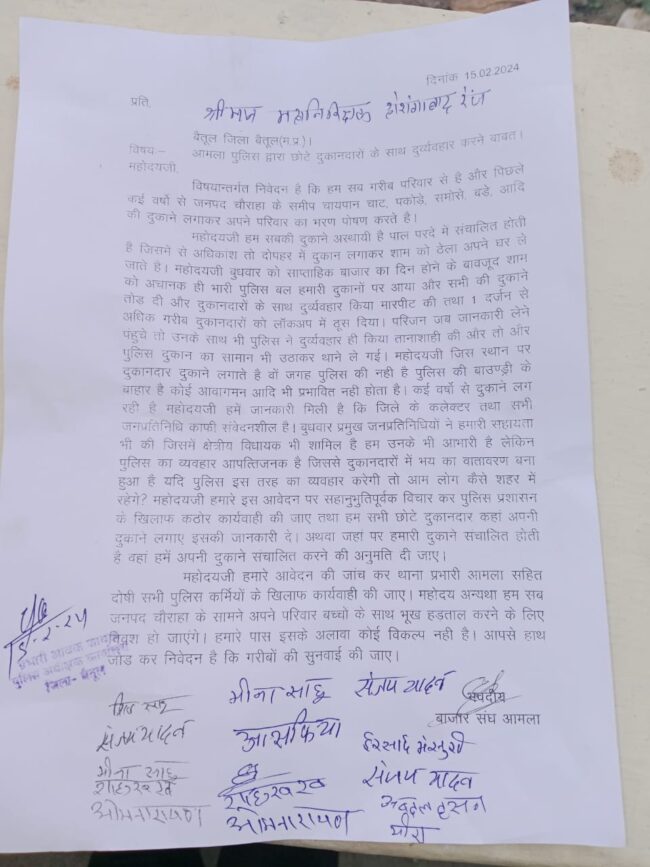 दिनांक 15.02.2024
प्रति,
श्रीमान महानिरीक्षक होशंगाबाद रेंज
बैतूल जिला बैतूल(म.प्र.)।
विषयः– आमला पुलिस द्वारा छोटे दुकानदारों के साथ दुर्व्यवहार करने बाबत।
महोदयजी.
विषयान्तर्गत निवेदन है कि हम सब गरीब परिवार से है और पिछले
कई वर्षो से जनपद चौराहा के समीप चायपान चाट, पकोड़े, समोसे, बड़े, आदि
की दुकाने लगाकर अपने परिवार का भरण पोषण करते है।
महोदयजी हम सबकी दुकाने अस्थायी है पाल परदे में संचालित होती
है जिसमें से अधिकांश तो दोपहर में दुकान लगाकर शाम को ठेला अपने घर ले
जाते है। महोदयजी बुधवार को साप्ताहिक बाजार का दिन होने के बावजूद शाम
को अचानक ही भारी पुलिस बल हमारी दुकानों पर आया और सभी की दुकाने
तोड दी और दुकानदारों के साथ दुर्व्यवहार किया मारपीट की तथा 1 दर्जन से
अधिक गरीब दुकानदारों को लॉकअप में ठूस दिया। परिजन जब जानकारी लेने
पंहुचे तो उनके साथ भी पुलिस ने दुर्व्यवहार ही किया तानाशाही की और तो और
पुलिस दुकान का सामान भी उठाकर थाने ले गई। महोदयजी जिस स्थान पर
दुकानदार दुकाने लगाते है वों जगह पुलिस की नही है पुलिस की बाउण्ड्री के
बाहार है कोई आवागमन आदि भी प्रभावित नही होता है। कई वर्षो से दुकाने लग
रही है महोदयजी हमें जानकारी मिली है कि जिले के कलेक्टर तथा सभी
जनप्रतिनिधि काफी संवेदनशील है। बुधवार प्रमुख जनप्रतिनिधियों ने हमारी सहायता
भी की जिसमें क्षेत्रीय विधायक भी शामिल है हम उनके भी आभारी है लेकिन
पुलिस का व्यवहार आपत्तिजनक है जिससे दुकानदारों में भय का वातावरण बना
हुआ है यदि पुलिस इस तरह का व्यवहार करेगी तो आम लोग कैसे शहर में
रहेगे? महोदयजी हमारे इस आवेदन पर सहानुभुतिपूर्वक विचार कर पुलिस प्रशासन
के खिलाफ कठोर कार्यवाही की जाए तथा हम सभी छोटे दुकानदार कहां अपनी
दुकाने लगाए इसकी जानकारी दे। अथवा जहां पर हमारी दुकाने संचालित होती
है वहां हमें अपनी दुकाने संचालित करने की अनुमति दी जाए।
महोदयजी हमारे आवेदन की जांच कर थाना प्रभारी आमला सहित
दोषी सभी पुलिस कर्मियों के खिलाफ कार्यवाही की जाए। महोदय अन्यथा हम सब
जनपद चौराहा के सामने अपने परिवार बच्चो के साथ भूख हडताल करने के लिए
विवश हो जाएंगे। हमारे पास इसके अलावा कोई विकल्प नही है। आपसे हाथ
जोड कर निवेदन है कि गरीबों की सुनवाई की जाए।
15-2-24
प्रभारी आवक जावक
पुलिस अधीक्षक कार्यालय
जिला- बैतूल
मीना साहू संजय यादव भवदीय
बाजार संघ आमला
संजय यादव आसफिया
मीना साहू संजय यादव
शाहरूख शाहरूख
ओमनारायण ओमनारायण मीरा